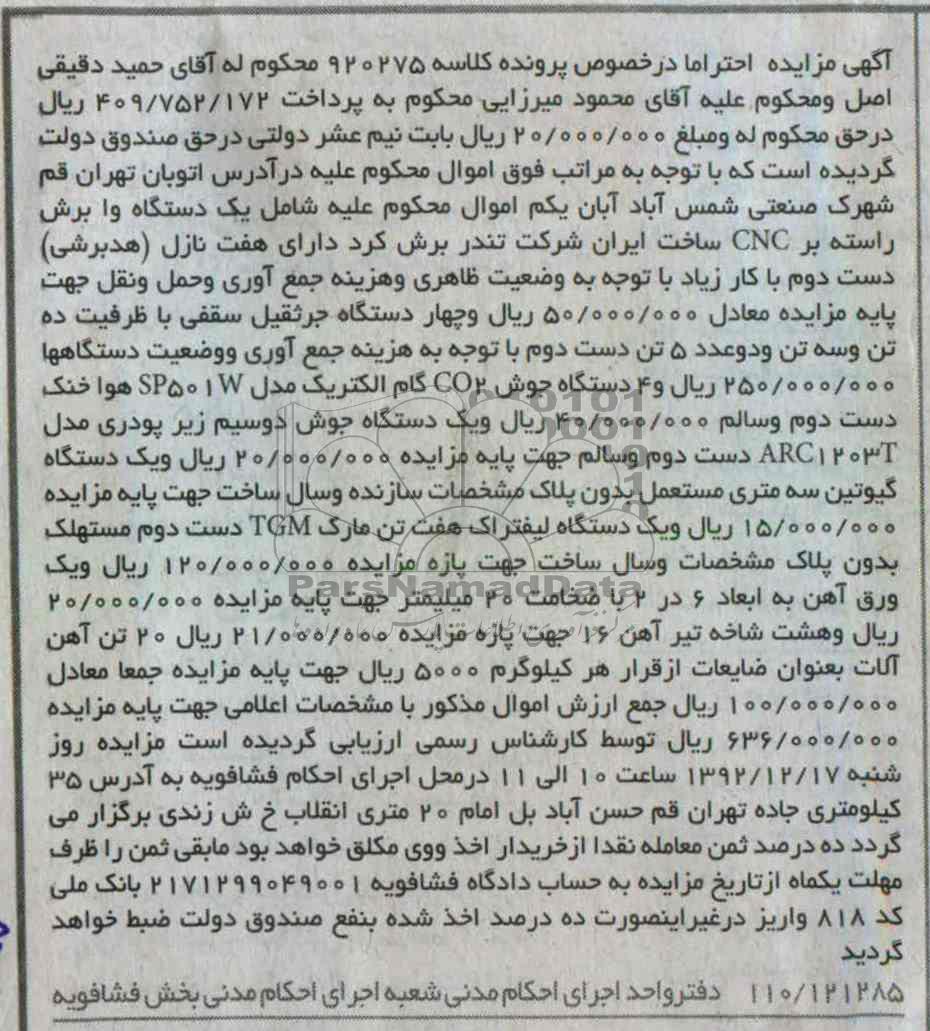 آگهی مزایده احتراما درخصوص پرونده کلاسه ۹۲۰۲۷۵ محکوم له آقای حمید دقیقی
اصل ومحکوم علیه آقای محمود میرزایی محکوم به پرداخت ۴۰۹/۷۵۲/۱۷۲ ریال
درحق محکوم له ومبلغ ۲۰/۰۰۰/۰۰۰ ریال بابت نیم عشر دولتی درحق صندوق دولت
گردیده است که با توجه به مراتب فوق اموال محکوم علیه درآدرس اتوبان تهران قم
شهرک صنعتی شمس آباد آبان یکم اموال محکوم علیه شامل یک دستگاه وا برش
راسته بر CNC ساخت ایران شرکت تندر برش کرد دارای هفت نازل (هدبرشی)
دست دوم با کار زیاد با توجه به وضعیت ظاهری وهزینه جمع آوری وحمل ونقل جهت
پایه مزایده معادل ۵۰/۰۰۰/۰۰۰ ریال وچهار دستگاه جرثقیل سقفی با ظرفیت ده
تن وسه تن ودوعدد ۵ تن دست دوم با توجه به هزینه جمع آوری ووضعیت دستگاهها
۲۵۰/۰۰۰/۰۰۰ ریال و۴ دستگاه جوش CO۲ گام الکتریک مدل SP۵۰۱W هوا خنک
دست دوم وسالم ۴۰/۰۰۰/۰۰۰ ریال ویک دستگاه جوش دوسیم زیر پودری مدل
ARC۱۲۰۳T دست دوم وسالم جهت پایه مزایده ۲۰/۰۰۰/۰۰۰ ریال ویک دستگاه
گیوتین سه متری مستعمل بدون پلاک مشخصات سازنده وسال ساخت جهت پایه مزایده
۱۵/۰۰۰/۰۰۰ ریال ویک دستگاه لیفتراک هفت تن مارک TGM دست دوم مستهلک
بدون پلاک مشخصات وسال ساخت جهت پازه مزایده ۱۲۰/۰۰۰/۰۰۰ ریال ویک
ParsNamadData
ورق آهن به ابعاد ۶ در ۲ با ضخامت ۲۰ میلیمتر جهت پایه مزایده ۲۰/۰۰۰/۰۰۰
ریال وهشت شاخه تیر آهن ۱۶ جهت پازه مزایده ۲۱/۰۰۰/۰۰۰ ریال ۲۰ تن آهن
آلات بعنوان ضایعات ازقرار هر کیلوگرم ۵۰۰۰ ریال جهت پایه مزایده جمعا معادل
۱۰۰/۰۰۰/۰۰۰ ریال جمع ارزش اموال مذکور با مشخصات اعلامی جهت پایه مزایده
۶۳۶/۰۰۰/۰۰۰ ریال توسط کارشناس رسمی ارزیابی گردیده است مزایده روز
شنبه ۱۳۹۲/۱۲/۱۷ ساعت ۱۰ الی ۱۱ درمحل اجرای احکام فشافویه به آدرس ۳۵
کیلومتری جاده تهران قم حسن آباد بل امام ۲۰ متری انقلاب خ ش زندی برگزار می
گردد ده درصد ثمن معامله نقدا ازخریدار اخذ ووی مکلق خواهد بود مابقی ثمن را ظرف
مهلت یکماه ازتاریخ مزایده به حساب دادگاه فشافویه ۲۱۷۱۲۹۹۰۴۹۰۰۱ بانک ملی
کد ۸۱۸ واریز درغیراینصورت ده درصد اخذ شده بنفع صندوق دولت ضبط خواهد
گردید
۱۱۰/۱۲۱۲۸۵ دفترواحد اجرای احکام مدنی شعبه اجرای احکام مدنی بخش فشافویه